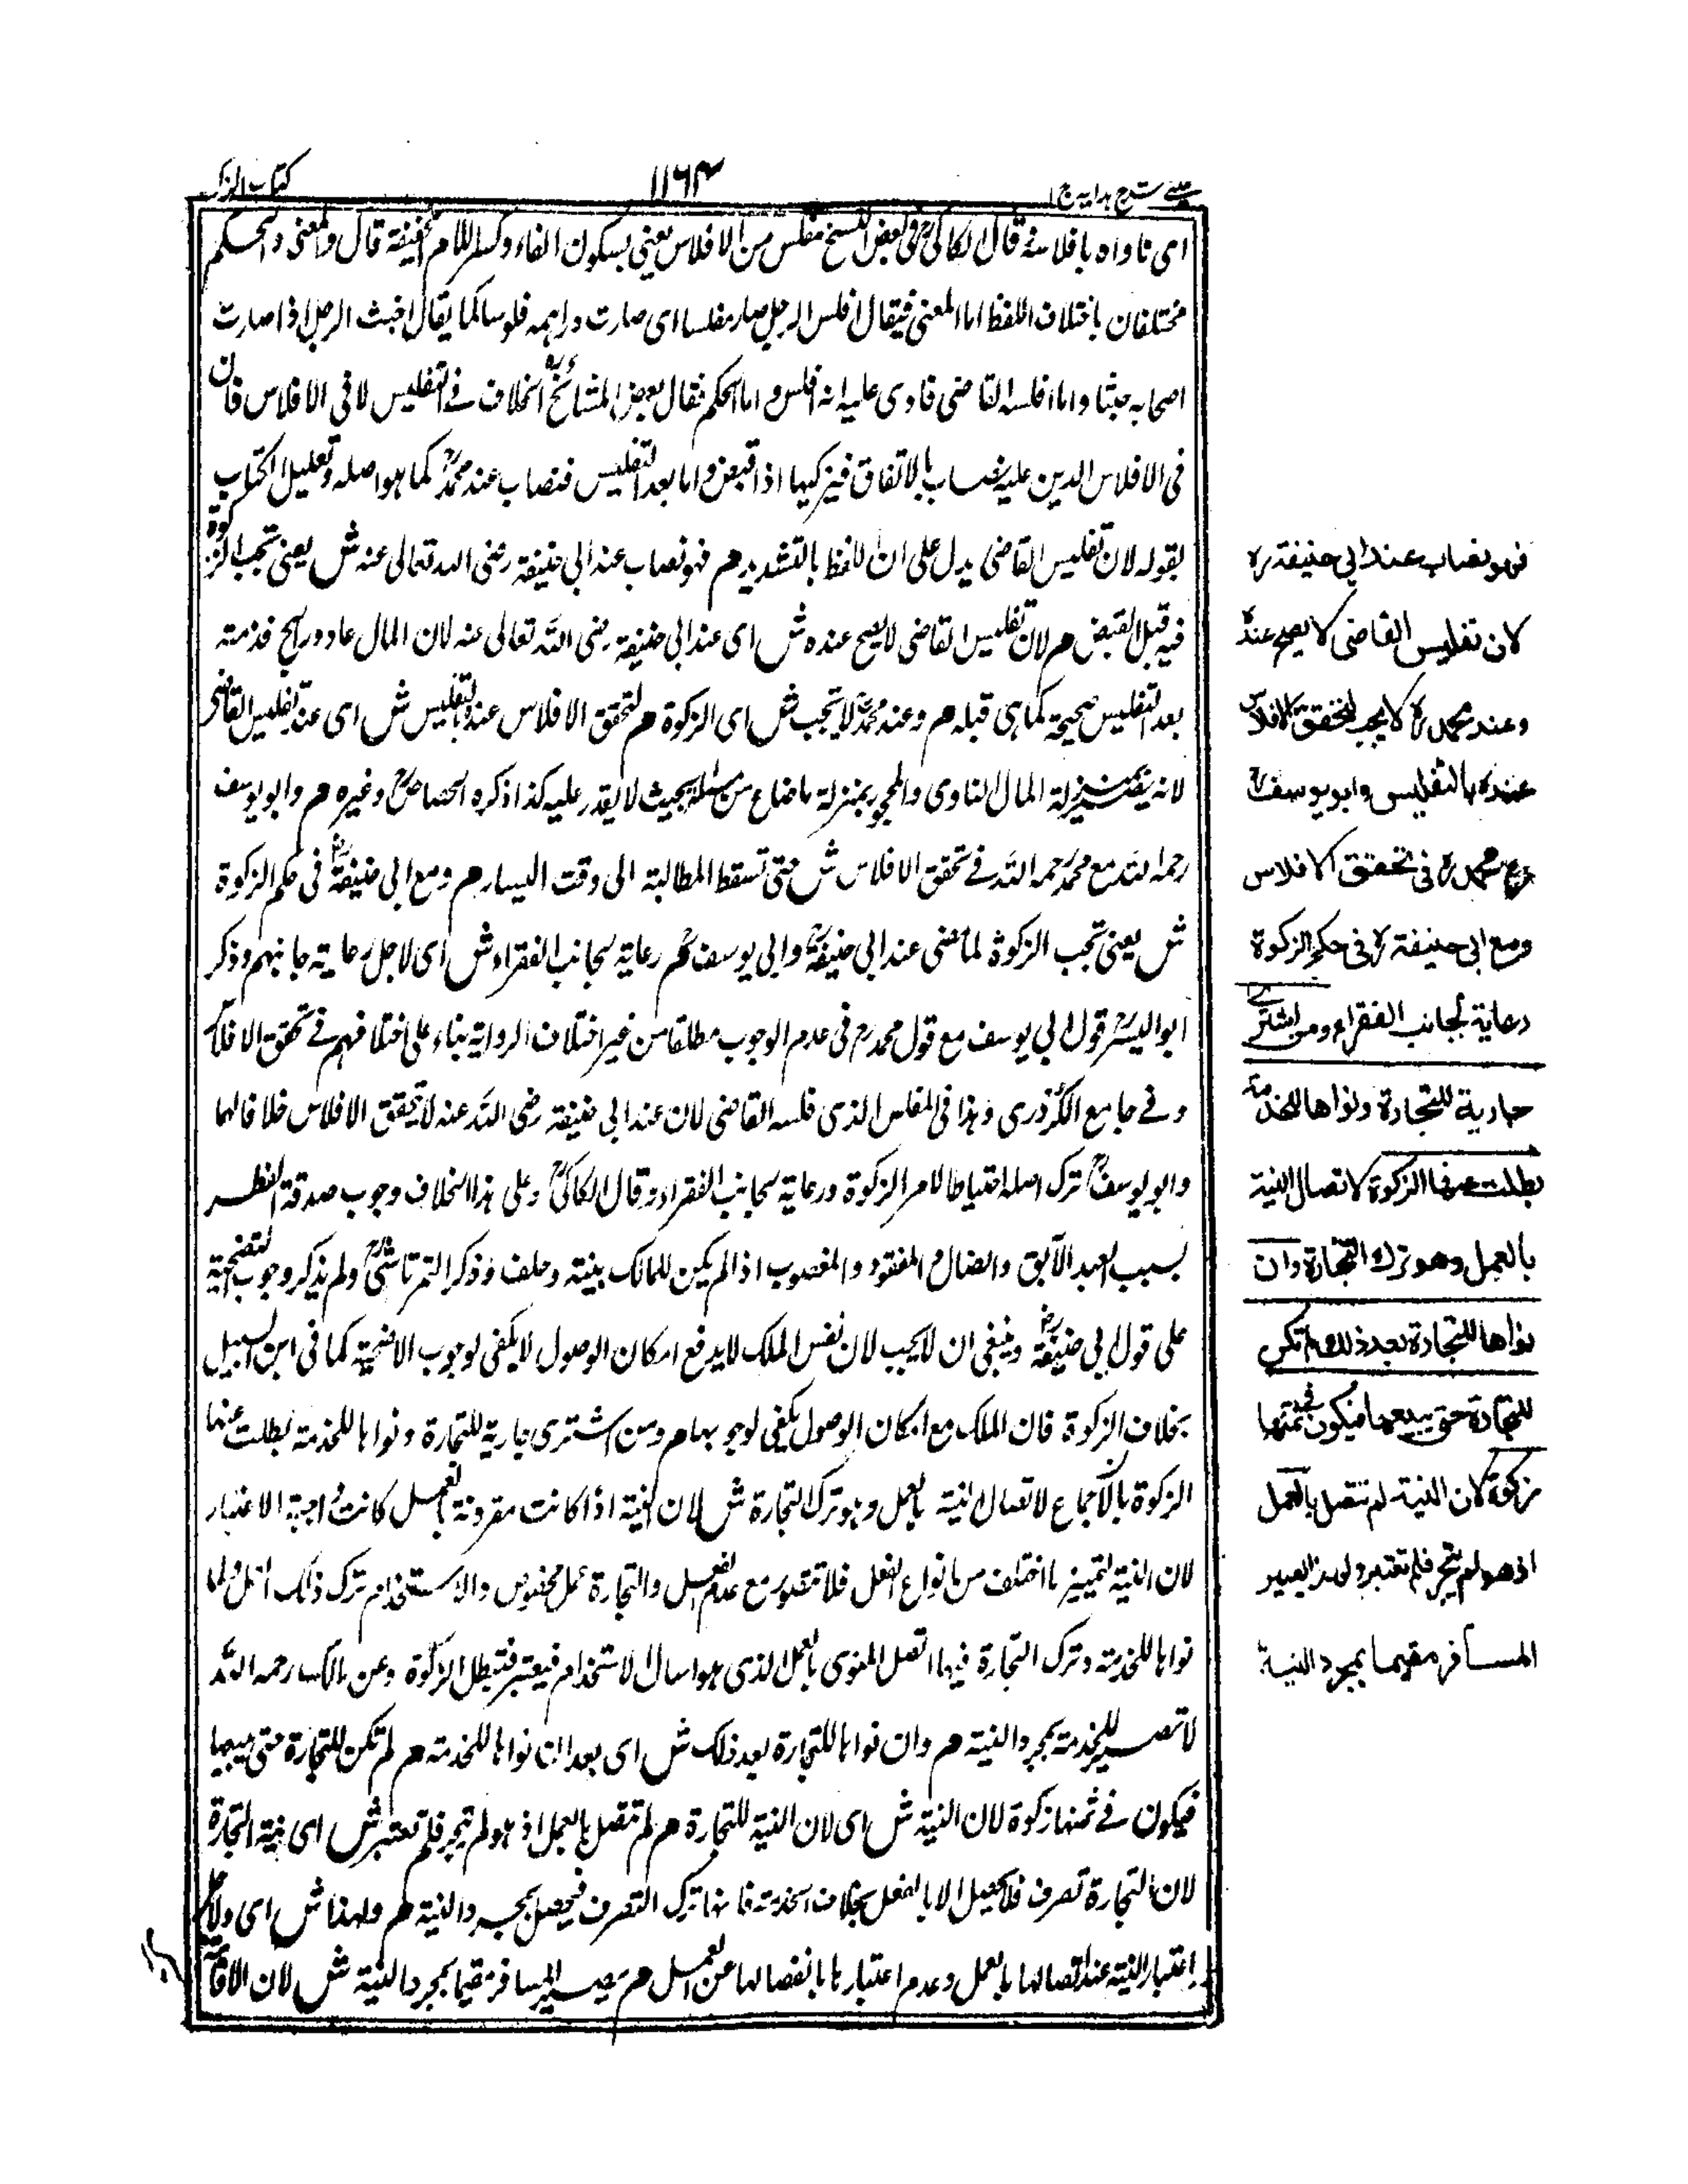 عينى شرح هدايه ج ١
١١٦٣
كتاب الزكوة
اى ناداه بافلاسه قال الكاكىؒ فى بعض النسخ مفلس من الافلاس يعنى بسكون الفاء وكسر اللام الخفيفة قال والمعنى والحكم
مختلفان باختلاف اللفظ اما المعنى فيقال افلس الرجل صار مفلسا اى صارت دراهمه فلوسا كما يقال اخبث الرجل اذا صارت
اصحابه خبثا واما فلسه القاضى فنادى عليه انه افلس واما الحكم فقال بعض المشائخؒ الخلاف فے التفليس لا فى الافلاس فان
فى الافلاس الدين عليه نصاب بالاتفاق فيزكيها اذا قبض واما بعد التفليس فنصاب عند محمدؒ كما هو اصله وتعليل الكتاب
بقوله لان تفليس القاضى يدل على ان اللفظ بالتشديد م فهو نصاب عند ابى حنيفة رضى الله تعالى عنه ش يعنى تجب الزكوة
فيه قبل القبض م لان تفليس القاضى لا يصح عنده ش اى عند ابى حنيفة رضى الله تعالى عنه لان المال غاد ورائح فذمته
بعد التفليس صحيحة كما هى قبله م وعند محمدؒ لا تجب ش اى الزكوة م لتحقق الافلاس عنده بالتفليس ش اى عند تفليس القاضى
لانه بمنزلة المال التاوى والمجحود بمنزلة ما ضاع من ماله بحيث لا يقدر عليه كذا ذكره الجصاصؒ وغيره م وابو يوسف
رحمه الله مع محمد رحمه الله فے تحقق الافلاس ش حتى تسقط المطالبة الى وقت اليسار م ومع ابى حنيفةؓ فى حكم الزكوة
ش يعنى تجب الزكوة لما مضى عند ابى حنيفةؒ وابى يوسفؒ م رعاية لجانب الفقراء ش اى لاجل رعاية جانبهم وذكر
ابو اليسر قول ابى يوسف مع قول محمد رح فى عدم الوجوب مطلقا من غير اختلاف الرواية بناء على اختلافهم فے تحقق الافلاس
وفے جامع الكردرى وهذا فى المفلس الذى فلسه القاضى لان عند ابى حنيفة رضى الله عنه لا يتحقق الافلاس خلافا لهما
وابو يوسفؒ ترك اصله احتياطا لامر الزكوة ورعاية لجانب الفقراء وقال الكاكىؒ وعلى هذا الخلاف وجوب صدقة الفطر
بسبب العبد الآبق والضال والمفقود والمغصوب اذا لم يكن للمالك بينة وحلف وذكر التمرتاشىؒ ولم يذكر وجوب التضحية
على قول ابى حنيفةؓ وينبغى ان لا يجب لان نفس الملك لا يدفع امكان الوصول لا يكفى لوجوب الاضحية كما فى ابن السبيل
بخلاف الزكوة فان الملك مع امكان الوصول يكفى لوجوبها م ومن اشترى جارية للتجارة ونواها للخدمة بطلت عنها
الزكوة بالاجماع لاتصال النية بالعمل وهو ترك التجارة ش لان النية اذا كانت مقرونة بالعمل كانت واجبة الاعتبار
لان النية لتمييز ما اختلف من انواع الفعل فلا تتصور مع عدم الفعل والتجارة عمل مخصوص والاستخدام ترك ذلك العمل ولما
نواها للخدمة وترك التجارة فيها اتصل المنوى بالعمل الذى هو امساك الاستخدام فيعتبر فتبطل الزكوة وعن مالك رحمه الله
لا تصير للخدمة بمجرد النية م وان نواها للتجارة بعد ذلك ش اى بعد ان نواها للخدمة م لم تكن للتجارة حتى يبيعها
فيكون فے ثمنها زكوة لان النية ش اى لان النية للتجارة م لم تتصل بالعمل اذ هو لم يتجر فلم تعتبر ش اى نية التجارة
لان التجارة تصرف فلا يحصل الا بالفعل بخلاف الخدمة فانها ترك التصرف فيحصل بمجرد النية م ولهذا ش اى ولاجل
اعتبار النية عند اتصالها بالعمل وعدم اعتبارها بانفصالها عن العمل م يصير المسافر مقيما بمجرد النية ش لان الاقامة
فهو نصاب عند ابى حنيفة ره
لان تفليس القاضى لا يصح عنده
وعند محمد ره لا يجب لتحقق الافلاس
عنده بالتفليس وابو يوسفؒ
مع محمد ره فى تحقق الافلاس
ومع ابى حنيفة ره فى حكم الزكوة
رعاية لجانب الفقراء ومن اشترى
جارية للتجارة ونواها للخدمة
بطلت عنها الزكوة لاتصال النية
بالعمل وهو ترك التجارة وان
نواها للتجارة بعد ذلك لم تكن
للتجارة حتى يبيعها فيكون فى ثمنها
زكوة لان النية لم تتصل بالعمل
اذ هو لم يتجر فلم تعتبر ولهذا يصير
المسافر مقيما بمجرد النية